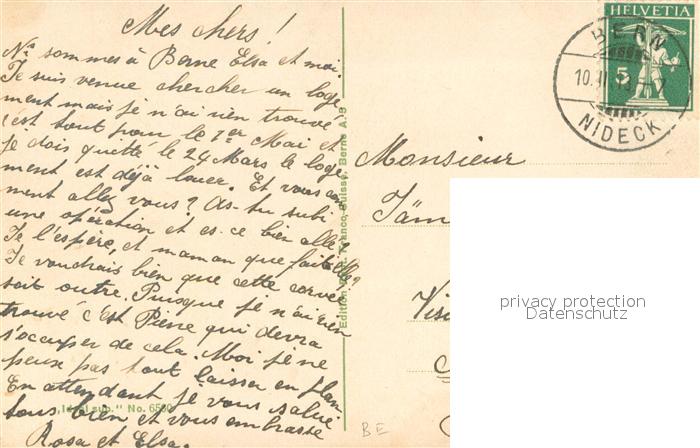 Mes chers!
Ns sommes à Berne Elsa et moi.
Je suis venue chercher un loge
ment mais je n'ai rien trouvé
c'est tout pour le 1er Mai et
je dois quitté le 24 Mars le loge
ment est déjà louer. Et vous com
ment allez vous? As-tu subi
une opération et es-ce bien allé?
Je l'espère, et maman que fait elle?
Je voudrais bien que cette corvée
soit outre. Puisque je n'ai rien
trouvé c'est Pierre qui devra
s'occuper de cela. Moi je ne
peux pas tout laisser en plan.
En attendant je vous salue
tous bien et vous embrasse
Rosa et Elsa.
No. 6580
Edition Franco-Suisse, Berne
HELVETIA
5
BERN
NIDECK
Monsieur
privacy protection
Datenschutz
BE